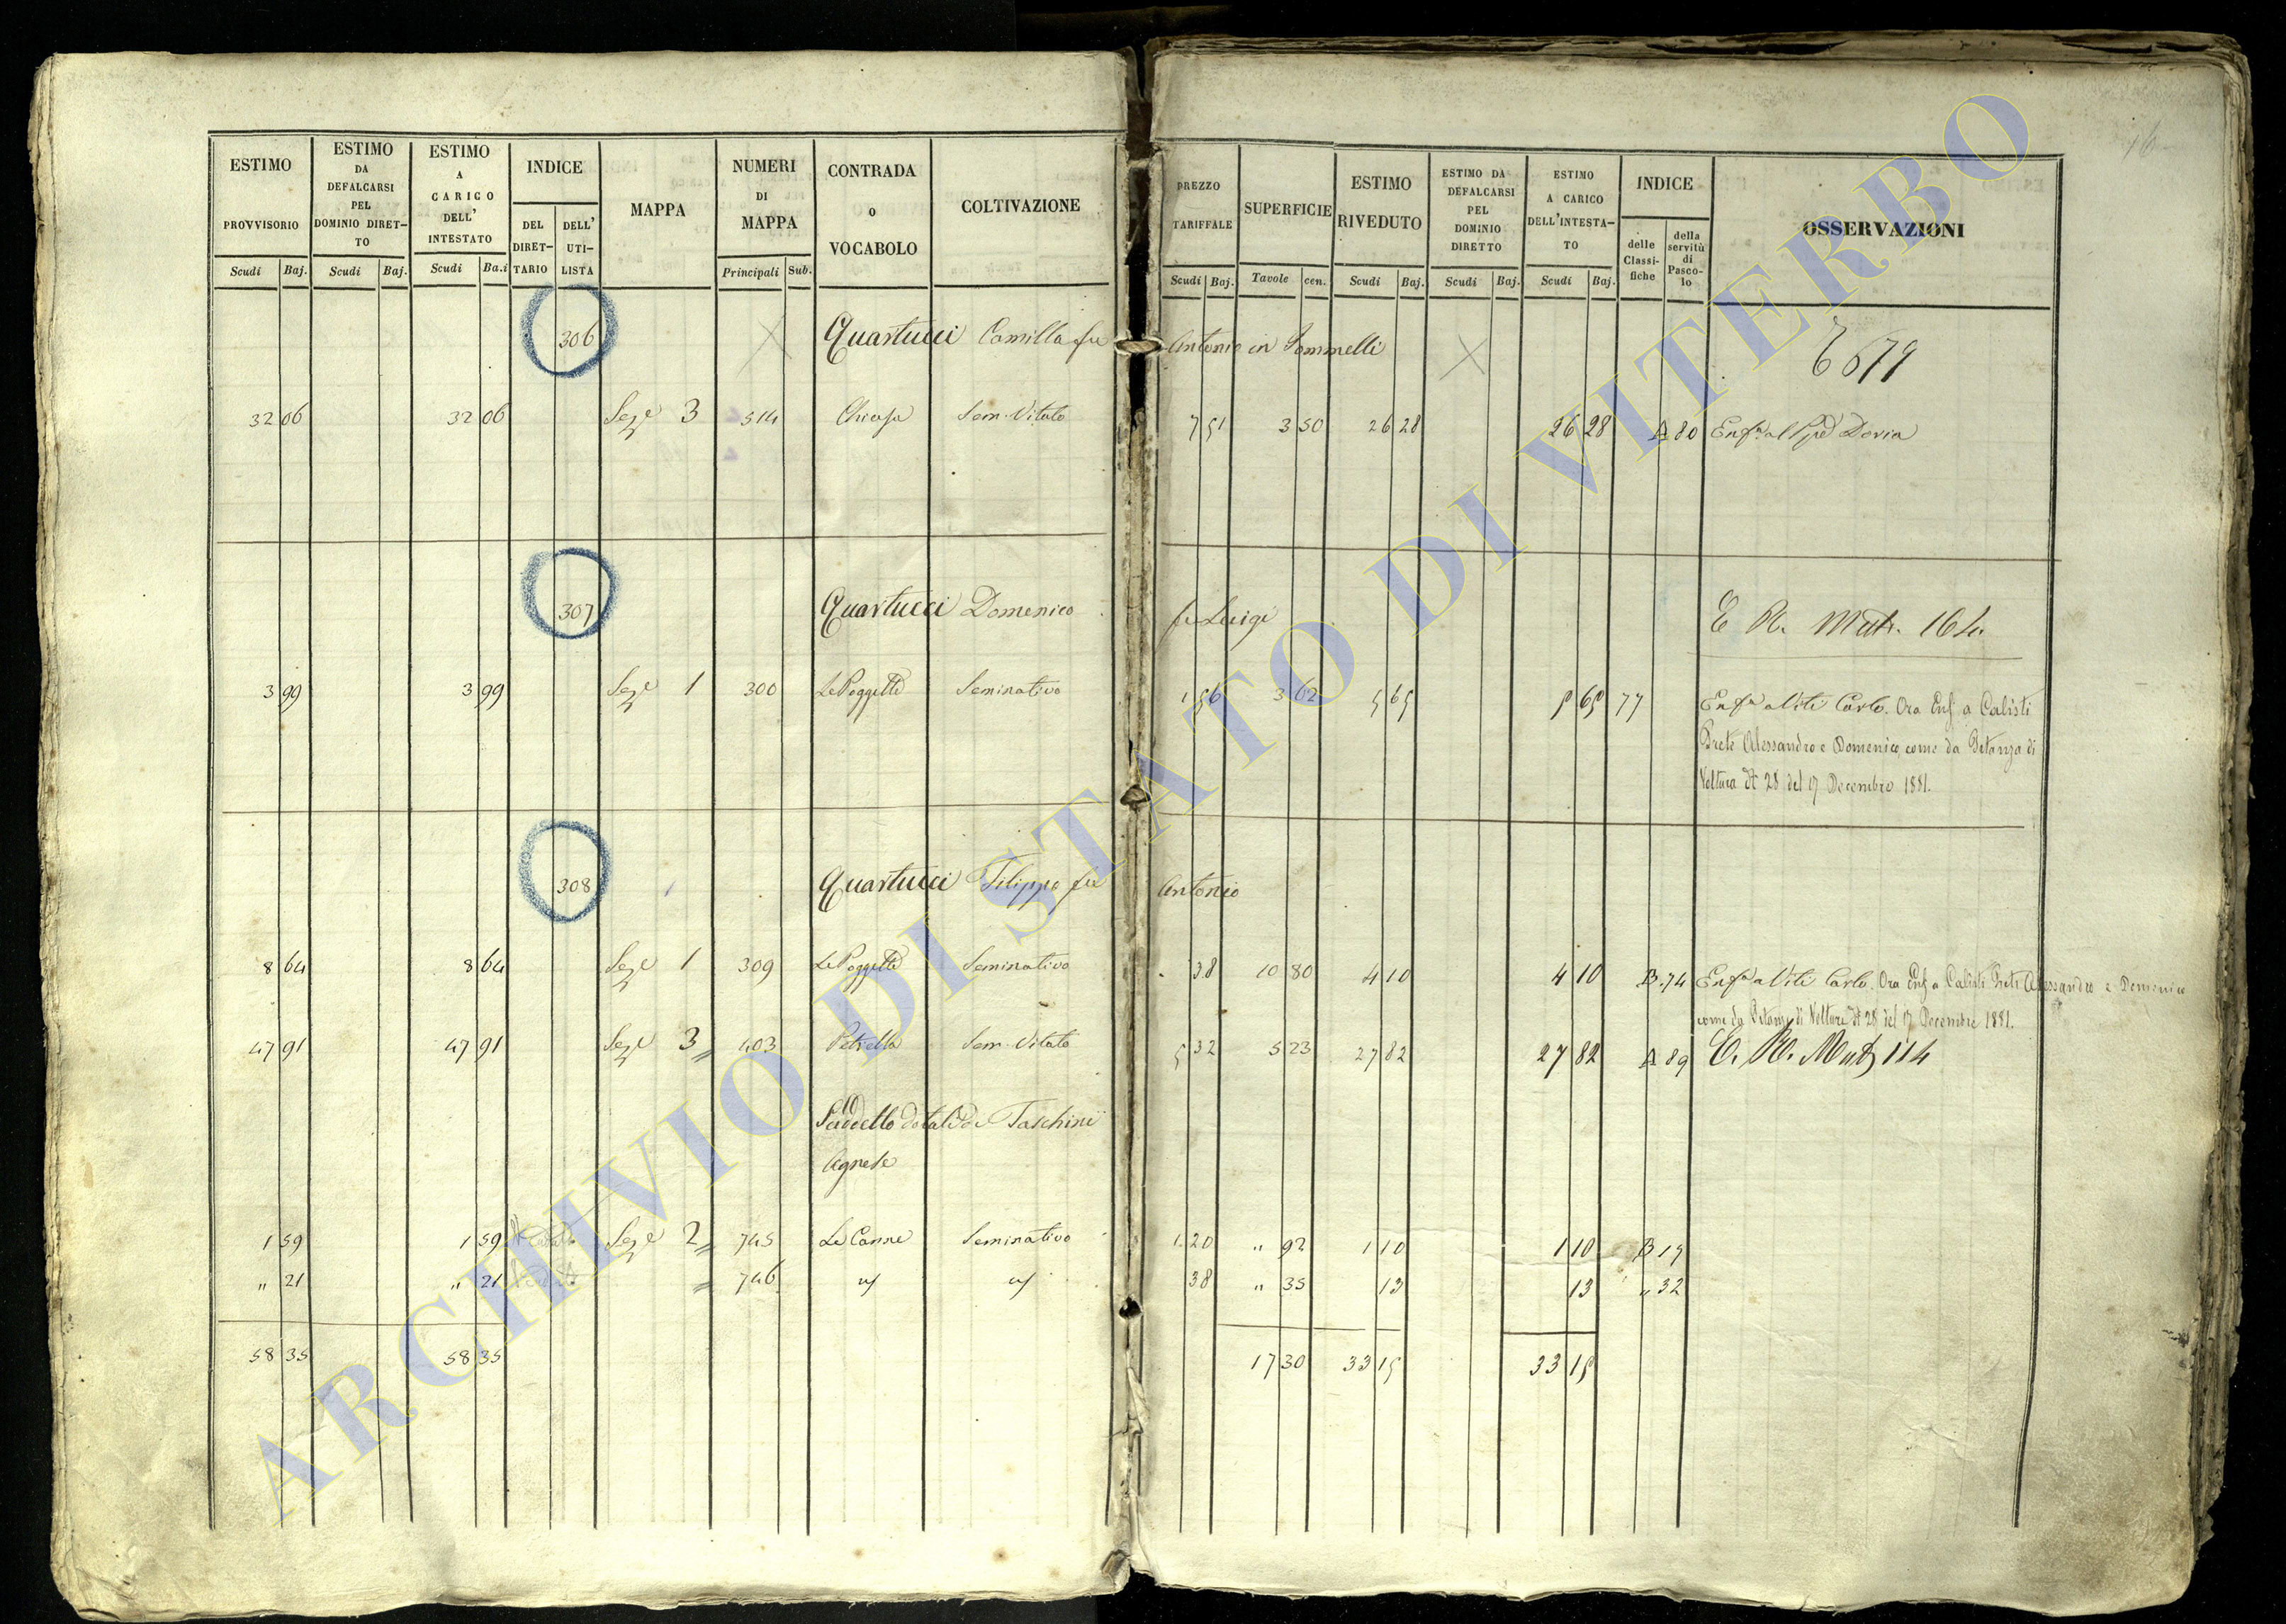 16
ESTIMO PROVVISORIO
ESTIMO DA DEFALCARSI PEL DOMINIO DIRET-TO
ESTIMO A CARICO DELL' INTESTATO
INDICE
DEL DIRET-TARIO
DELL' UTI-LISTA
MAPPA
NUMERI DI MAPPA
CONTRADA O VOCABOLO
COLTIVAZIONE
Scudi Baj. Scudi Baj. Scudi Ba.i Principali Sub.
PREZZO TARIFFALE
SUPERFICIE
ESTIMO RIVEDUTO
ESTIMO DA DEFALCARSI PEL DOMINIO DIRETTO
ESTIMO A CARICO DELL'INTESTA-TO
INDICE
delle Classi-fiche
della servitù di Pasco-lo
OSSERVAZIONI
Scudi Baj. Tavole cen. Scudi Baj. Scudi Baj. Scudi Baj.
306 Quartucci Camilla fu Antonio in Pommelli
32 06 32 06 Sez.e 3 514 Chiusa Sem. Vitato 7 51 3 50 26 28 26 28 A 80 Enf.a al Doria
307 Quartucci Domenico fu Luigi E R. Matr. 164
3 99 3 99 Sez.e 1 300 Le Poggette Seminativo 1 56 3 62 5 65 5 65 77 Enf.a a Viti Carlo. Ora Enf. a Calisti
Prete Alessandro e Domenico come da Istanza di
Voltura N 28 del 17 Decembre 1881.
308 Quartucci Filippo fu Antonio
8 64 8 64 Sez.e 1 309 Le Poggette Seminativo 38 10 80 4 10 4 10 B. 74 Enf.a a Viti Carlo. Ora Enf a Calisti Prete Alessandro e Domenico
come da Istanza di Voltura N 28 del 17 Decembre 1881.
47 91 47 91 Sez.e 3 403 Petrella Sem. Vitato 5 32 5 23 27 82 27 82 A 89 E. R. Mat 114
Suddetto dotale di Taschini
Agnese
1 59 1 59 Sez.e 2 745 Le Canne Seminativo 1. 20 " 92 1 10 1 10 B 15
" 21 " 21 746 38 " 35 13 13 " 32
58 35 58 35 17 30 33 15 33 15
ARCHIVIO DI STATO DI VITERBO